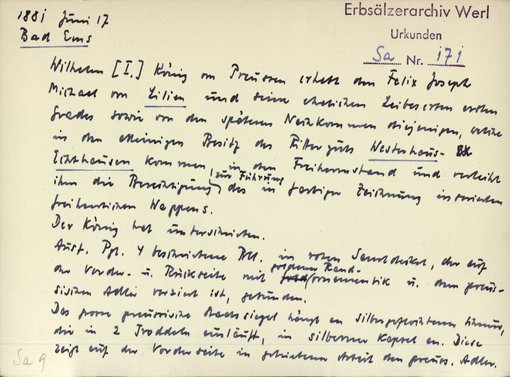 1881 Juni 17
Bad Ems
Erbsälzerarchiv Werl
Urkunden
Sa Nr. 171
Wilhelm [I.] König von Preussen erhebt den Felix Joseph
Michael von Lilien und seine ehelichen Leibeserben ersten
Grades sowie von den späteren Nachkommen diejenigen, welche
in den alleinigen Besitz des Ritterguts Westerhaus-
Echthausen kommen, in den Freiherrnstand und verleiht
ihm die Berechtigung zur Führung des in farbiger Zeichnung inserierten
freiherrlichen Wappens.
Der König hat unterschrieben.
Ausf. Pgt. 4 beschriebene Bll. in roten Samtdeckel, der auf
der Vorder- u. Rückseite mit goldener Rand-
ornamentik u. dem preus-
sischen Adler verziert ist, gebunden.
Das grosse preussische Staatssiegel hängt an silbergeflochtener Schnur,
die in 2 Troddeln ausläuft, in silberner Kapsel an. Diese
zeigt auf der Vorderseite in getriebener Arbeit den preuss. Adler.
Sa 9